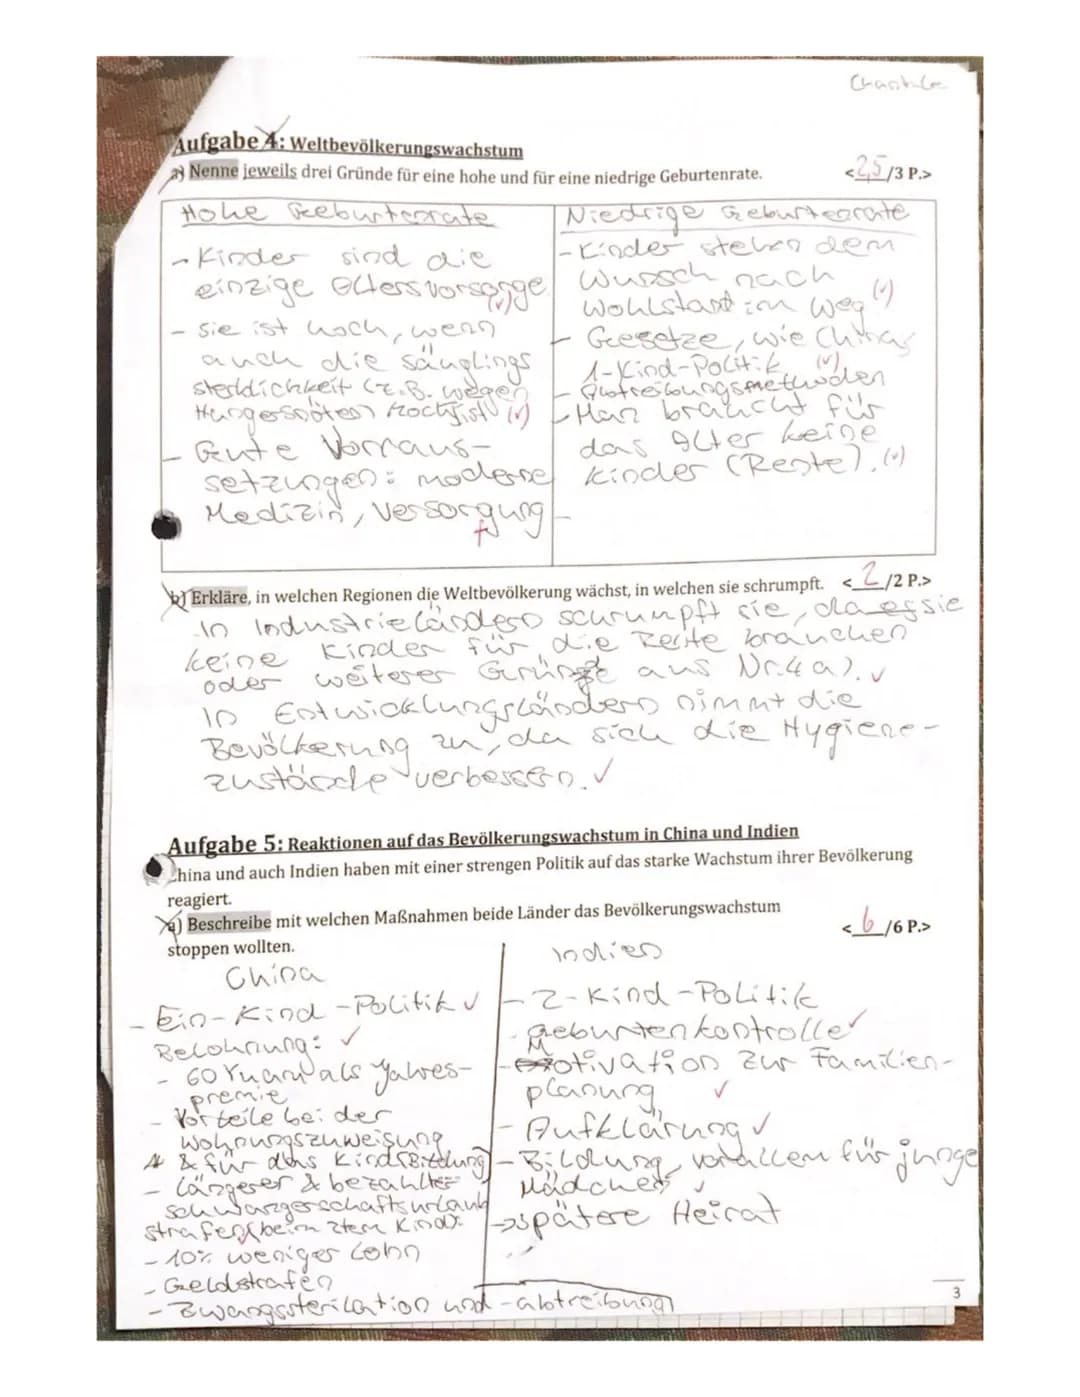 Aufgabe 4: Weltbevölkerungswachstum
a) Nenne jeweils drei Gründe für eine hohe und für eine niedrige Geburtenrate.
<2,5/3 P.>
Hohe Geburtenrate
- Kinder sind die
einzige Altersvorsorge (✓)
- sie ist hoch, wenn
auch die Säuglings
sterblichkeit (z.B. wegen
Hungersnöten) hoch ist (✓)
- Gute Vorraus-
setzungen: moderne
Medizin, Versorgung
Niedrige Geburtenrate
- Kinder stehen dem
Wunsch nach
Wohlstand im Weg (✓)
- Gesetze, wie Chinas
1-Kind-Politik (✓)
- Abtreibungsmethoden
- Man braucht für
das Alter keine
Kinder (Rente). (✓)
-
b) Erkläre, in welchen Regionen die Weltbevölkerung wächst, in welchen sie schrumpft. <2/2 P.>
In Industrieländern schrumpft sie, da sie
keine Kinder für die Rente brauchen
oder weiterer Gründe aus Nr.4a). ✓
In Entwicklungsländern nimmt die
Bevölkerung zu, da sich die Hygiene-
zustände verbessern. ✓
Aufgabe 5: Reaktionen auf das Bevölkerungswachstum in China und Indien
China und auch Indien haben mit einer strengen Politik auf das starke Wachstum ihrer Bevölkerung
reagiert.
a) Beschreibe mit welchen Maßnahmen beide Länder das Bevölkerungswachstum
stoppen wollten.
<6/6 P.>
China
- Ein-Kind-Politik ✓
Belohnung: ✓
- 60 Yuan als Jahres-
premie
- Vorteile bei der
Wohnungszuweisung
& für das Kind (Bildung)
- längerer & bezahlter
schwangerschaftsurlaub
strafen (beim 2tem Kind):
- 10% weniger Lohn
- Geldstrafen
- Zwangssterilation und -abtreibung
Indien
- 2-Kind-Politik
- Geburtenkontrolle ✓
- Motivation zur Familien-
planung ✓
- Aufklärung ✓
- Bildung, vorallem für junge
Mädchen ✓
→ spätere Heirat
3